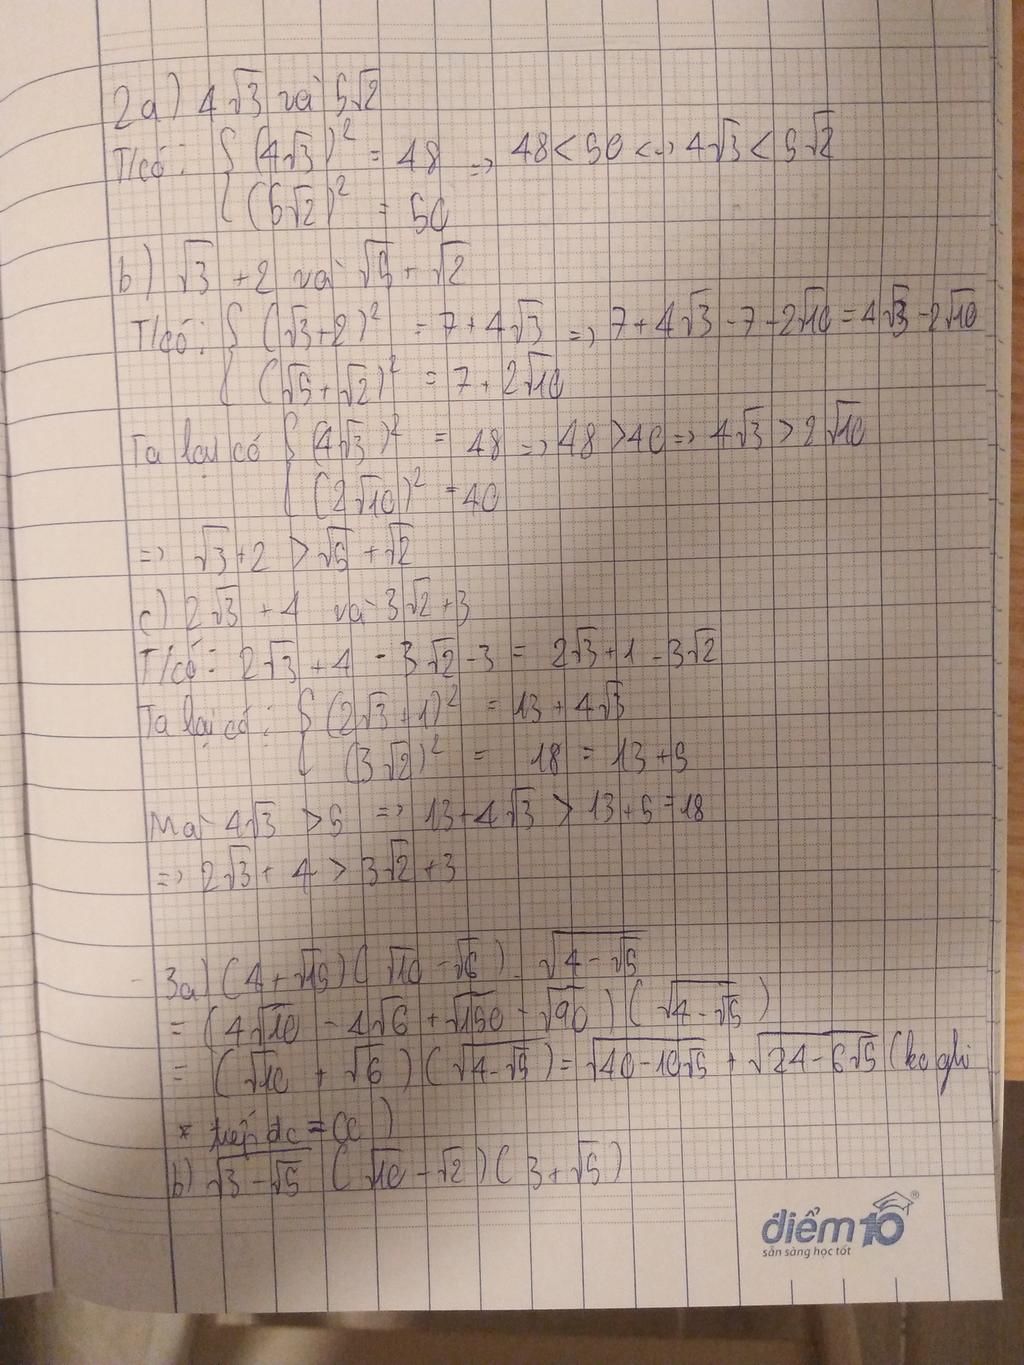 2a) 4√3 và 5√2
T/có: { (4√3)² = 48 => 48 < 50 <=> 4√3 < 5√2
(5√2)² = 50
b) √3 + 2 và √5 + √2
T/có: { (√3+2)² = 7 + 4√3 => 7 + 4√3 - 7 - 2√10 = 4√3 - 2√10
(√5 + √2)² = 7 + 2√10
Ta lại có { (4√3)² = 48 => 48 > 40 => 4√3 > 2√10
(2√10)² = 40
=> √3 + 2 > √5 + √2
c) 2√3 + 4 và 3√2 + 3
T/có: 2√3 + 4 - 3√2 - 3 = 2√3 + 1 - 3√2
Ta lại có: { (2√3 + 1)² = 13 + 4√3
(3√2)² = 18 = 13 + 5
Mà 4√3 > 5 => 13 + 4√3 > 13 + 5 = 18
=> 2√3 + 4 > 3√2 + 3
3a) (4 + √15)(√10 - √6) √(4 - √5)
= (4√10 - 4√6 + √150 - √90)(√(4 - √5))
= (√10 + √6)(√(4 - √5)) = √(40 - 10√5) + √(24 - 6√5) (ko ghi
* tiếp dc = )
b) √(3 - √5) (√10 - √2)(3 + √5)
điểm 10®
sẵn sàng học tốt